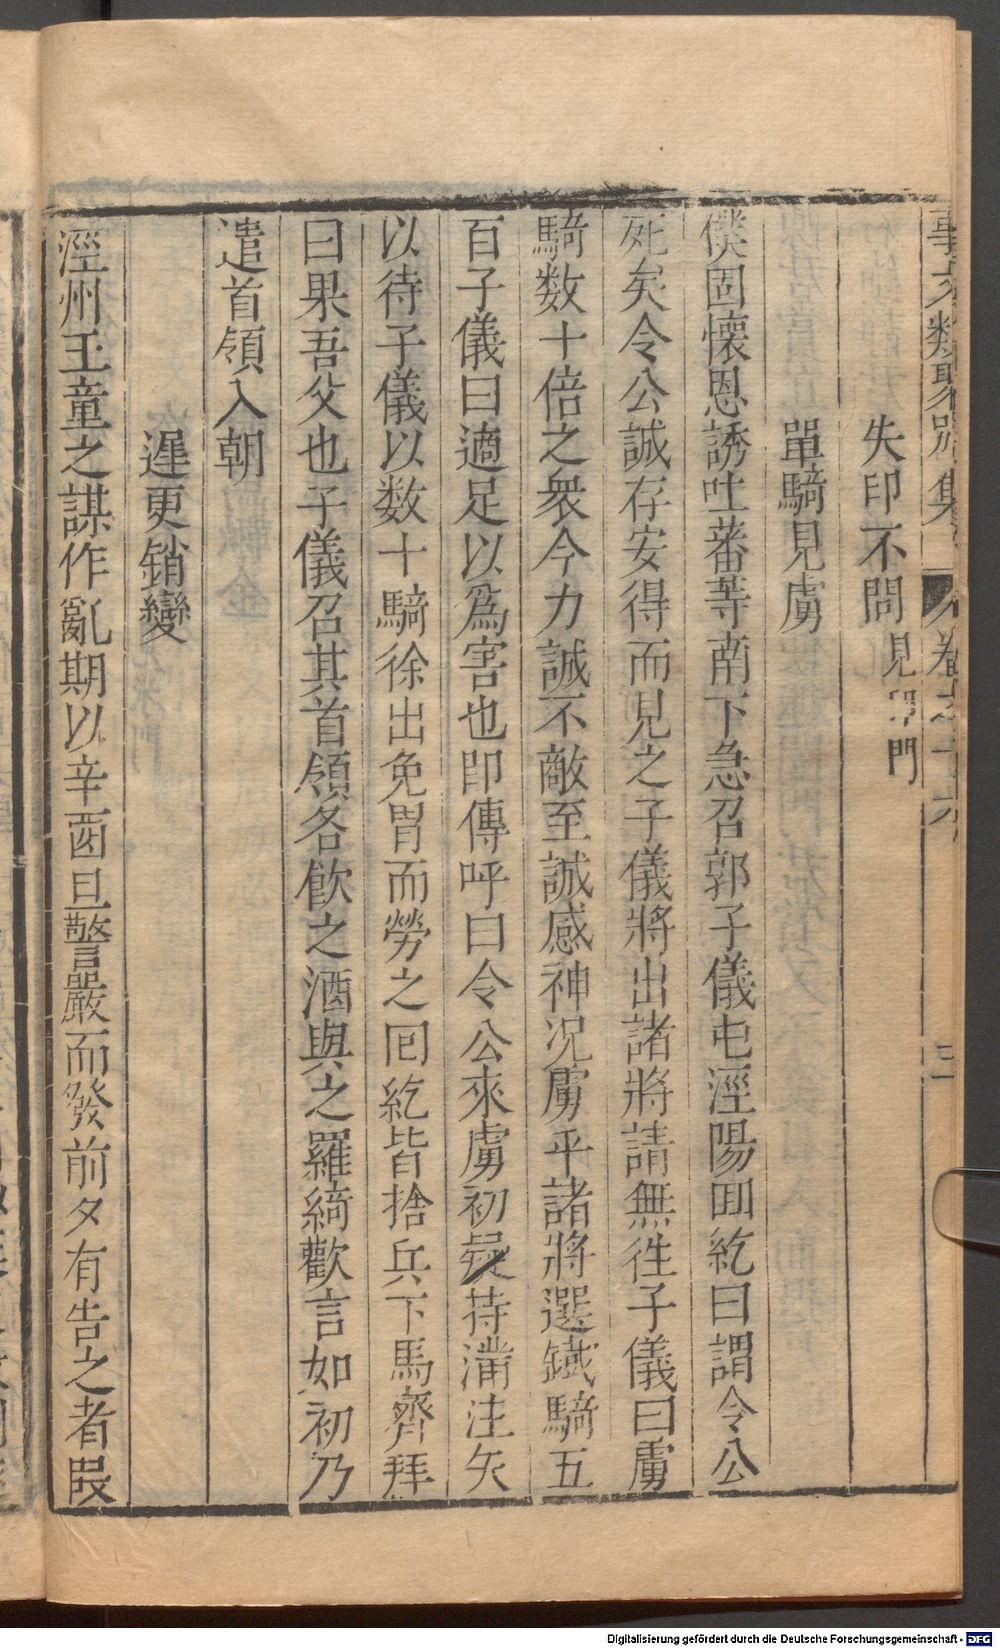 事文類聚別集 卷之十六 三
失印不問見印門
單騎見虜
僕固懷恩誘吐蕃等南下急召郭子儀屯涇陽回紇曰謂令公
死矣令公誠存安得而見之子儀將出諸將請無徃子儀曰虜
騎数十倍之衆今力誠不敵至誠感神况虜乎諸將選鐵騎五
百子儀曰適足以爲害也即傳呼曰令公來虜初疑持滿注矢
以待子儀以数十騎徐出免胄而勞之回紇皆捨兵下馬齊拜
曰果吾父也子儀召其首領各飲之酒與之羅綺歡言如初乃
遣首領入朝
遲更銷變
涇州王童之謀作亂期以辛酉旦警嚴而發前夕有告之者叚
Digitalisierung gefördert durch die Deutsche Forschungsgemeinschaft - DFG